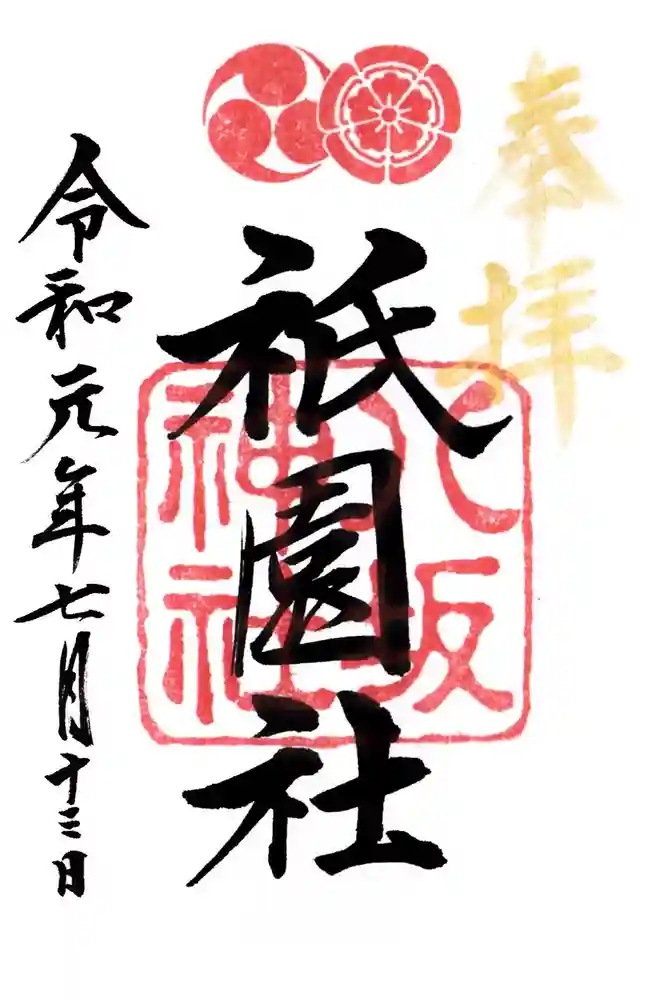 奉拝
祇園社
八坂神社
令和元年七月十三日